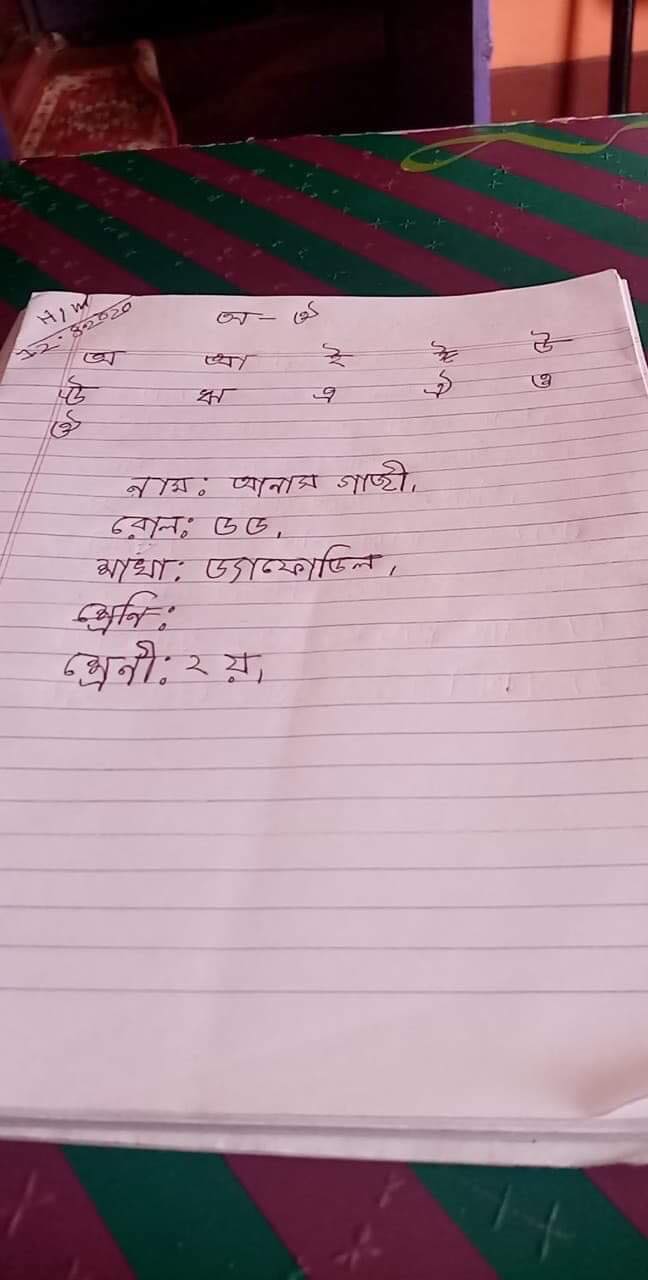 H/W
অ - ঔ
অ আ ই ঈ উ
ঊ ঋ এ ঐ ও
ঔ
নাম: আনাস গাজী,
রোল: ৬৬,
শাখা: ড্যাফোডিল,
শ্রেনি:
শ্রেনী: ২ য়,